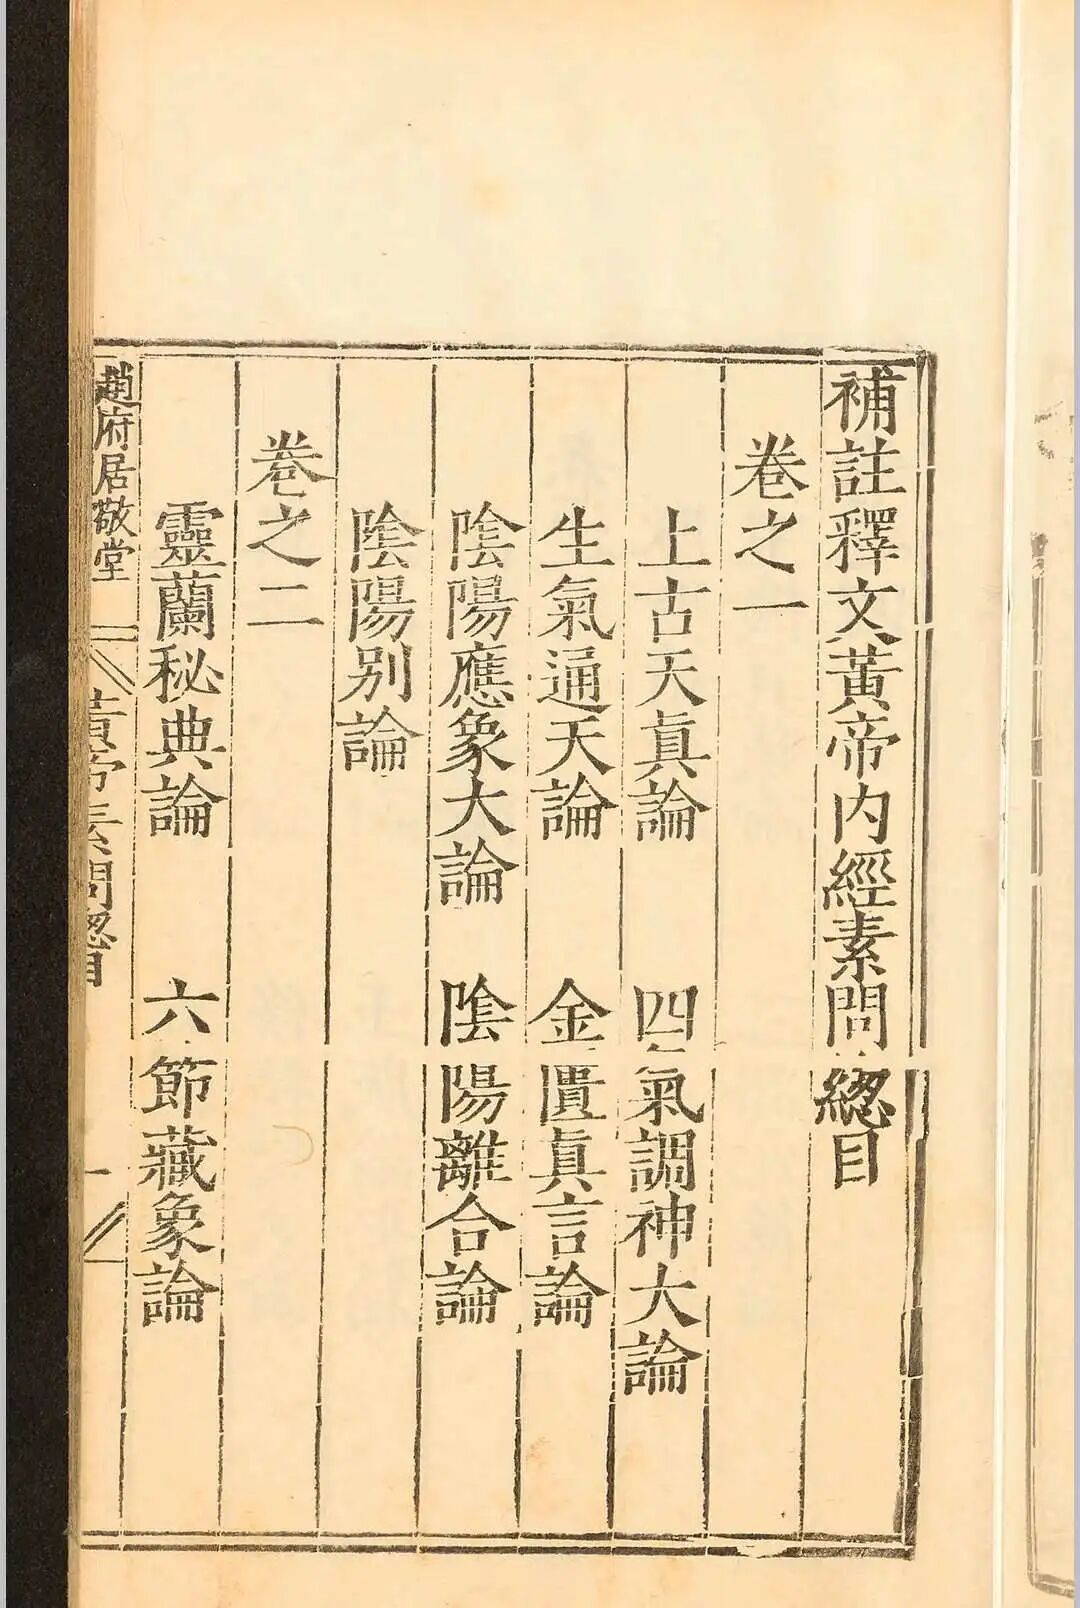 補註釋文黃帝内經素問緫目
卷之一
上古天眞論　四氣調神大論
生氣通天論　金匱眞言論
陰陽應象大論　陰陽離合論
陰陽别論
卷之二
靈蘭秘典論　六節藏象論
趙府居敬堂
黃帝素問緫目
一